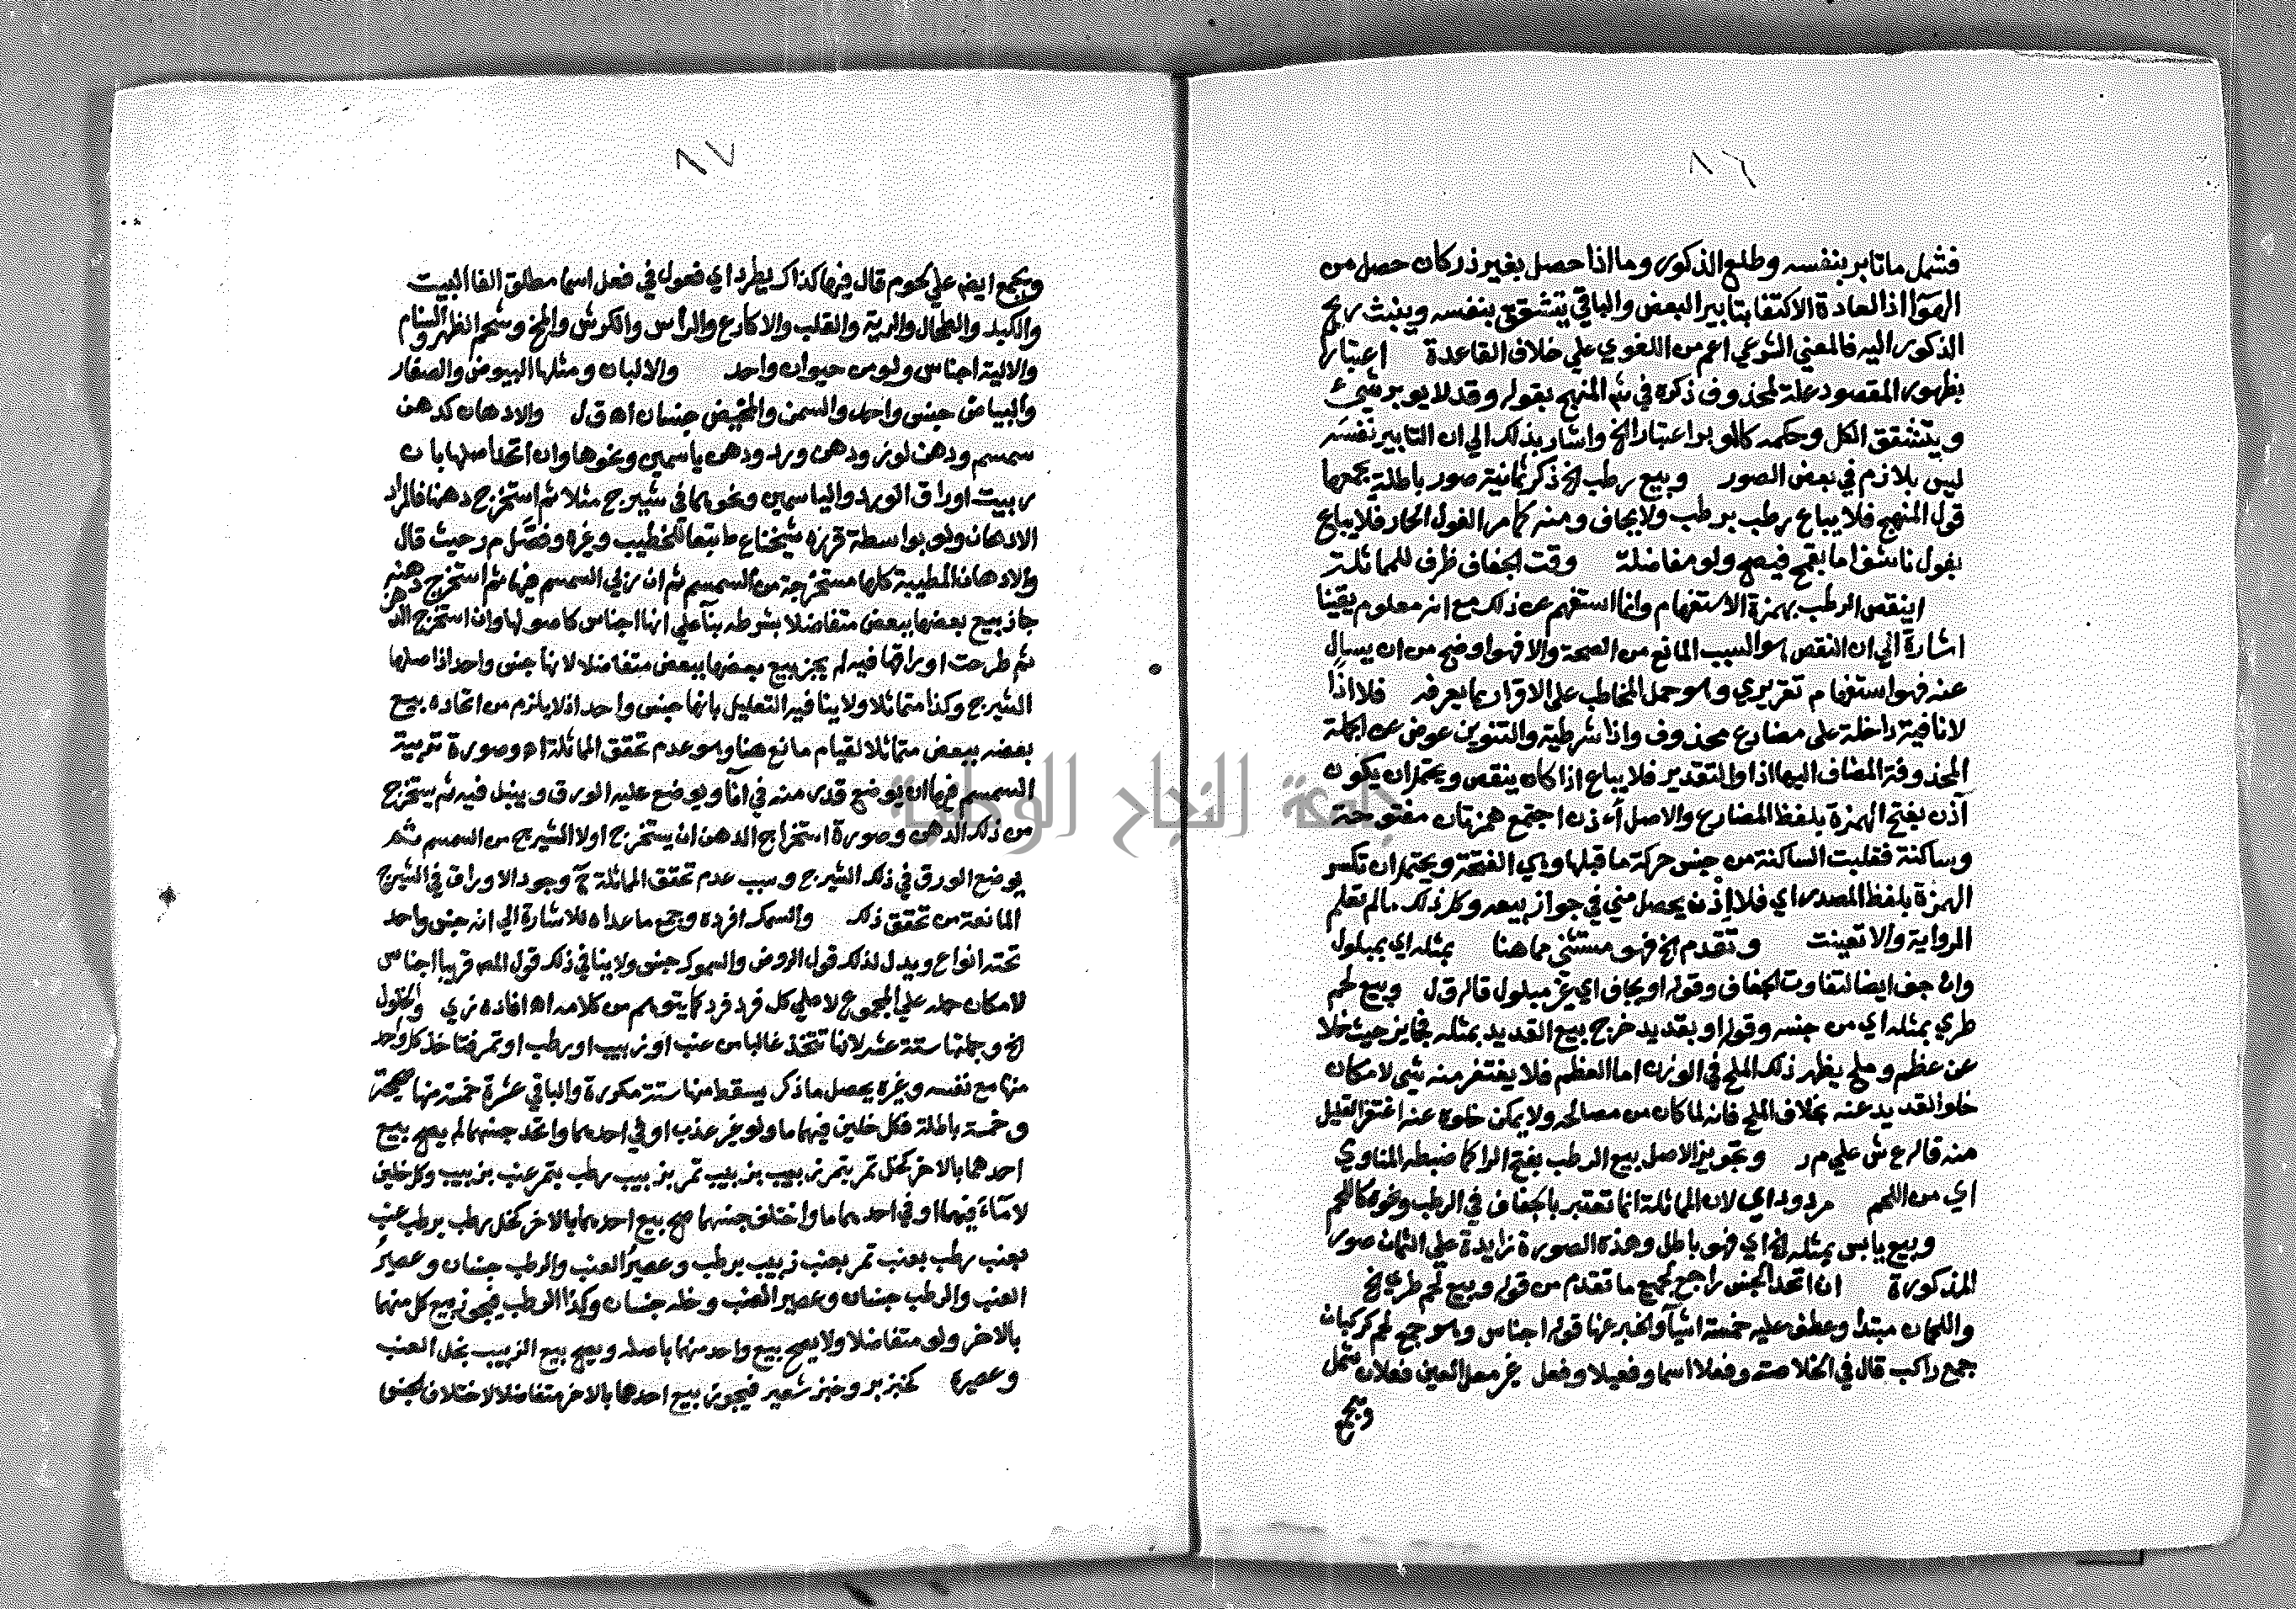 ٨٦
فشمل ما تابر بنفسه وطلع الذكور وما اذا حصل بغير ذر كان حصل من
الهوا اذ العادة الاكتفا بتابير البعض والباقي يتشقق بنفسه وينبث ريح
الذكور اليه فالمعني الشرعي اعم من اللغوي علي خلاف القاعدة اعتبارا
بظهور المقصود علة لمحذوف ذكره في شم المنهج بقوله وقد لا يوبر شيء
ويتشقق الكل وحكمه كالموبر اعتبارا الخ واشار بذلك الي ان التابير نفسه
ليس بلازم في بعض الصور وبيع رطب الخ ذكر ثمانية صور باطلة يجمعها
قول المنهج فلا يباع رطب برطب ولا بجاف ومنه كما مر الفول الحار فلا يباع
بفول ناشف اما بقمح فيصح ولو مفاضلة وقت الجفاف ظرف للمماثلة
اينقص الرطب بهمزة الاستفهام وانما استفهم عن ذلك مع انه معلوم يقينا
اشارة الي ان النقص هو السبب المانع من الصحة والا فهو اوضح من ان يسال
عنه فهو استفهام تقريري وهو حمل المخاطب علي الاقرار بما يعرفه فلا اذًا
لا نافية داخلة علي مضارع محذوف واذا شرطية والتنوين عوض عن الجملة
المحذوفة المضاف اليها اذا والتقدير فلا يباع اذا كان ينقص ويحتمل ان يكون
آذن بفتح الهمزة بلفظ المضارع والاصل أءذن اجتمع همزتان مفتوحة
وساكنة فقلبت الساكنة من جنس حركة ما قبلها وهي الفتحة ويحتمل ان تكسر
الهمزة بلفظ المصدر اي فلا اِذْن يحصل مني في جواز بيعه وكل ذلك مالم تعلم
الرواية والا تعينت وتقدم الخ فهو مستثني مما هنا بمثله اي بمبلول
وان جف ايضا لتفاوت الجفاف وقوله او بجاف اي غير مبلول قاله ق ل وبيع لحم
طري بمثله اي من جنسه وقوله او بقديد خرج بيع القديد بمثله فجايز حيث خلا
عن عظم وملح يظهر ذلك الملح في الوزن اما العظم فلا يغتفر منه شي لامكان
خلو القديد عنه بخلاف الملح فانه لما كان من مصالحه ولا يمكن خلوه عنه اغتفر القليل
منه قاله ع ش علي م ر وتجويز الاصل بيع الرطب بفتح الرا كما ضبطه المناوي
اي من اللحم مردود اي لان المماثلة انما تعتبر بالجفاف في الرطب ونحوه كاللحم
وبيع يابس بمثله الخ اي فهو باطل وهذه الصورة زايدة علي الثمان صور
المذكورة ان اتحد الجنس راجع لجميع ما تقدم من قوله وبيع لحم طري الخ
واللحمان مبتدا وعطف عليه خمسة اشيآ والخبر عنها قوله اجناس وهو جمع لحم كركبان
جمع راكب قال في الخلاصة وفعلا اسما وفعيلا وفعل غير معل العين فعلان شمل
ويجمع
٨٧
ويجمع ايضا علي لحوم قال فيها كذاك يطرد اي فعول في فعل اسما مطلق الفا البيت
والكبد والطحال والرية والقلب والاكارع والراس والكرش والمخ وشحم الظهر والسنام
والالية اجناس ولو من حيوان واحد والالبان ومثلها البيوض والصفار
والبياض جنس واحد والسمن والمخيض جنسان اه ق ل والادهان كدهن
سمسم ودهن لوز ودهن ورد ودهن ياسمين ونحوها وان اتحد اصلها بان
ربيت اوراق الورد والياسمين ونحوهما في شيرج مثلا ثم استخرج دهنها فالمراد
الادهان ولو بواسطة قرره شيخنا ع ط تبعا للخطيب وغيره وفصّل م ر حيث قال
والادهان المطيبة كلها مستخرجة من السمسم ثم ان ربي السمسم فيها ثم استخرج دهنه
جاز بيع بعضها ببعض متفاضلا بشرطه بنآ علي انها اجناس كاصولها وان استخرج الدهن
ثم طرحت اوراقها فيه لم يجز بيع بعضها ببعض متفاضلا لانها جنس واحد اذ اصلها
الشيرج وكذا متماثلا ولا ينافيه التعليل بانها جنس واحد اذ لا يلزم من اتحاده بيع
بعضه ببعض متماثلا لقيام مانع هنا وهو عدم تحقق المماثلة اه وصورة تربية
السمسم فيها ان يوضع قدر منه في انآ ويوضع عليه الورق وينبل فيه ثم يستخرج
من ذلك الدهن وصورة استخراج الدهن ان يستخرج اولا الشيرج من السمسم ثم
يوضع الورق في ذلك الشيرج وسبب عدم تحقق المماثلة ح وجود الاوراق في الشيرج
المانعة من تحقق ذلك والسمك افرده وجمع ما عداه للاشارة الي انه جنس واحد
تحته انواع ويدل لذلك قول الروض والسموك جنس ولا ينافي ذلك قول المص قريبا اجناس
لامكان حمله علي المجموع لا علي كل فرد فرد كما يتوهم من كلامه اه افاده زي والخلول
الخ وجملتها ستة عشر لانها تتخذ غالبا من عنب او زبيب او رطب او تمر فتاخذ كل واحد
منها مع نفسه وغيره يحصل ما ذكر يسقط منها ستة مكررة والباقي عشرة خمسة منها صحيحة
وخمسة باطلة فكل خلين فيهما ما ولو غير عذب او في احدهما واتحد جنسهما لم يصح بيع
احدهما بالاخر كخل تمر بتمر زبيب بزبيب تمر بزبيب رطب بتمر عنب بزبيب وكل خلين
لا مآء فيهما او في احدهما ما واختلف جنسهما صح بيع احدهما بالاخر كخل رطب برطب عنب
بعنب رطب بعنب تمر بعنب زبيب برطب وعصير العنب والرطب جنسان وعصير
العنب والرطب جنسان وعصير العنب وخله جنسان وكذا الرطب فيجوز بيع كل منهما
بالاخر ولو متفاضلا ولا يصح بيع واحد منهما باصله ويصح بيع الزبيب بخل العنب
وعصيره كخبز بر وخبز شعير فيجوز بيع احدهما بالاخر متفاضلا لاختلاف الجنس
جامعة النجاح الوطنية